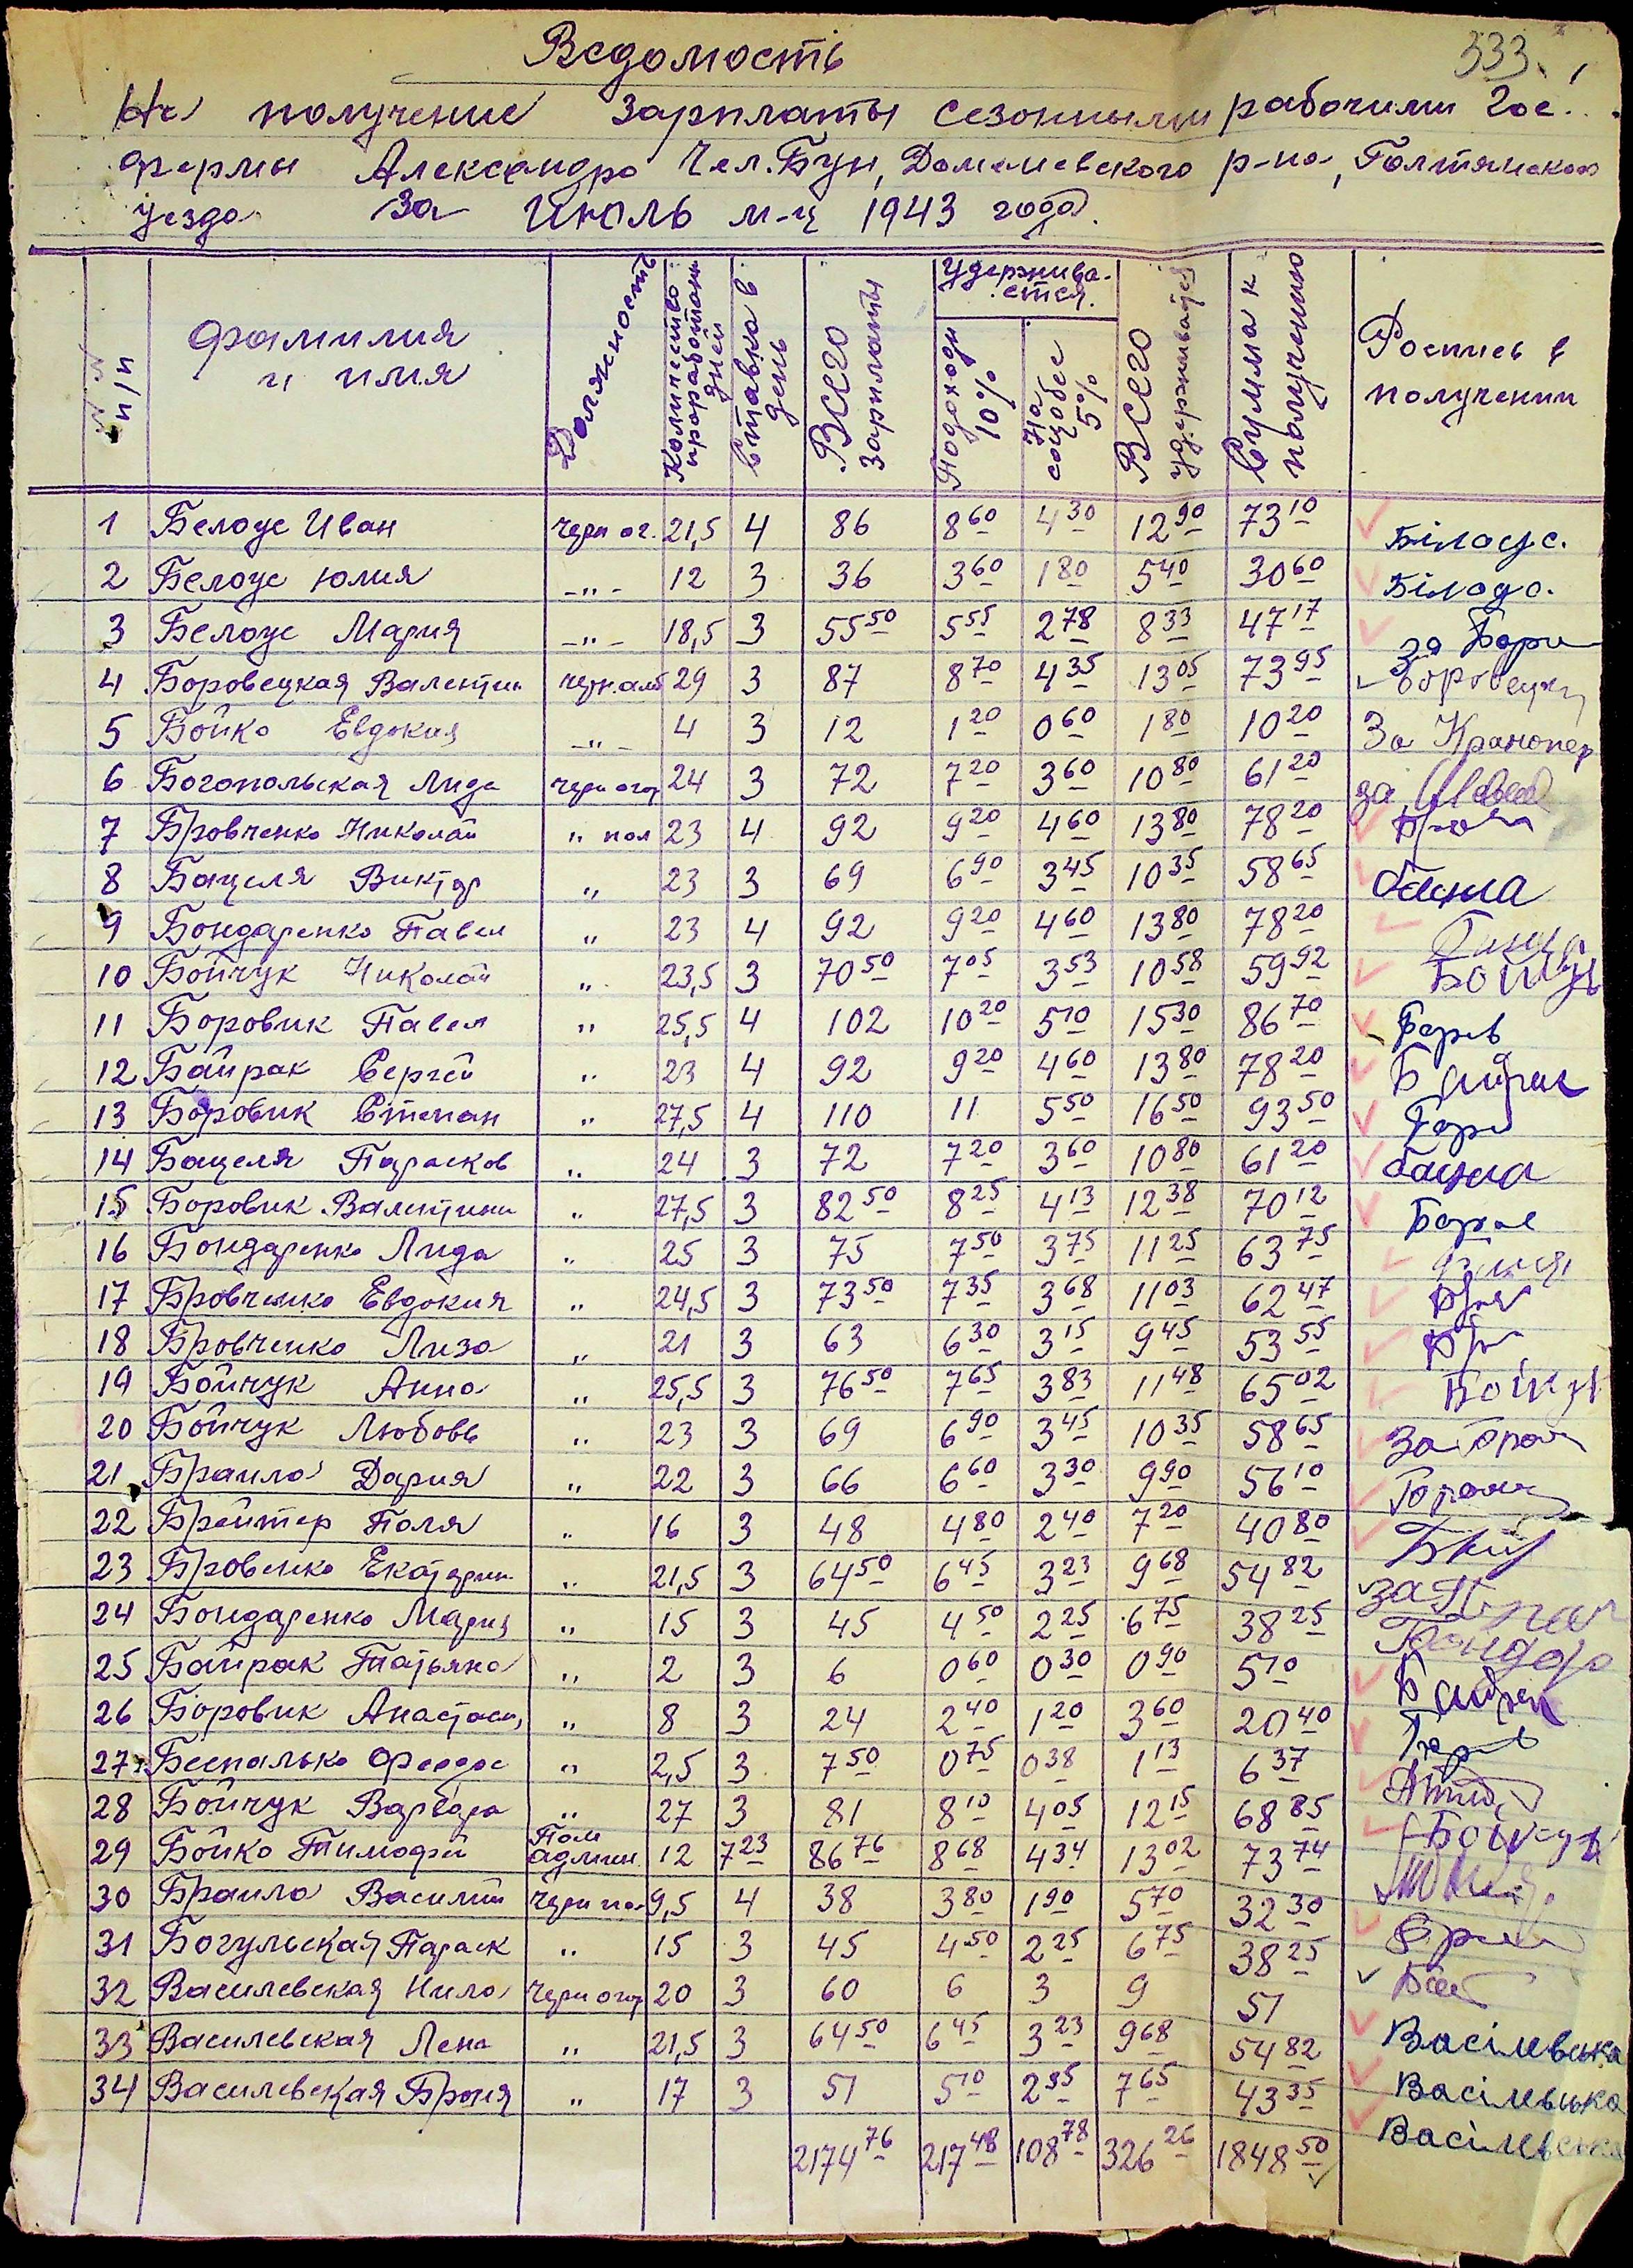 Ведомость
333.
На получение зарплаты сезонными рабочими Гос.
фермы Александро Чел. Бун, Доманевского р-на, Голтянского
уезда за Июль м-ц 1943 года.
№№ п/п Фамилия и имя Должность Количество проработан дней Ставка в день Всего зарплаты Удерживается Подоходн 10% На соцобес 5% Всего удерживается Сумма к получению Роспись в получении
1 Белоус Иван черн ог. 21,5 4 86 8 60 4 30 12 90 73 10 Білоус.
2 Белоус Юлия –"– 12 3 36 3 60 1 80 5 40 30 60
3 Белоус Мария –"– 18,5 3 55 50 5 55 2 78 8 33 47 17 за
4 Боровецкая Валентин черн. 29 3 87 8 70 4 35 13 05 73 95
5 Бойко Евдокия –"– 4 3 12 1 20 0 60 1 80 10 20 За
6 Богопольская Лида черн огор 24 3 72 7 20 3 60 10 80 61 20 за
7 Бровченко Николай " пол 23 4 92 9 20 4 60 13 80 78 20
8 Бацеля Виктор " 23 3 69 6 90 3 45 10 35 58 65
9 Бондаренко Павел " 23 4 92 9 20 4 60 13 80 78 20
10 Бойчук Николай " 23,5 3 70 50 7 05 3 53 10 58 59 92
11 Боровик Павел " 25,5 4 102 10 20 5 10 15 30 86 70
12 Байрак Сергей " 23 4 92 9 20 4 60 13 80 78 20 Байрак
13 Боровик Степан " 27,5 4 110 11 5 50 16 50 93 50
14 Бацеля Парасков " 24 3 72 7 20 3 60 10 80 61 20
15 Боровик Валентина " 27,5 3 82 50 8 25 4 13 12 38 70 12
16 Бондаренко Лида " 25 3 75 7 50 3 75 11 25 63 75
17 Бровченко Евдокия " 24,5 3 73 50 7 35 3 68 11 03 62 47
18 Бровченко Лиза " 21 3 63 6 30 3 15 9 45 53 55
19 Бойчук Анна " 25,5 3 76 50 7 65 3 83 11 48 65 02
20 Бойчук Любовь " 23 3 69 6 90 3 45 10 35 58 65 За
21 Браило Дария " 22 3 66 6 60 3 30 9 90 56 10
22 Брейтер Поля " 16 3 48 4 80 2 40 7 20 40 80
23 Бровенко Екатерин " 21,5 3 64 50 6 45 3 23 9 68 54 82 за
24 Бондаренко Мария " 15 3 45 4 50 2 25 6 75 38 25
25 Байрак Татьяна " 2 3 6 0 60 0 30 0 90 5 10
26 Боровик Анастасия " 8 3 24 2 40 1 20 3 60 20 40
27 Беспалько Федос " 2,5 3 7 50 0 75 0 38 1 13 6 37
28 Бойчук Варвара " 27 3 81 8 10 4 05 12 15 68 85
29 Бойко Тимофей Пом админ. 12 7 23 86 76 8 68 4 34 13 02 73 74
30 Браило Василий Черн пол 9,5 4 38 3 80 1 90 5 70 32 30
31 Богульская Параск " 15 3 45 4 50 2 25 6 75 38 25
32 Василевская Нила Черн огор 20 3 60 6 3 9 51
33 Василевская Лена " 21,5 3 64 50 6 45 3 23 9 68 54 82 Васілевська
34 Василевская Броня " 17 3 51 5 10 2 55 7 65 43 35 Васілевська
2174 76 217 48 108 78 326 26 1848 50 Васілевська